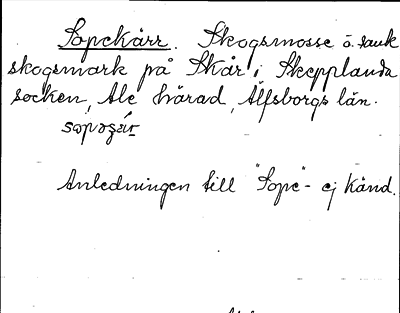 Sopekärr. Skogsmosse å sank
skogsmark på Skår i Skepplanda
socken, Ale härad, Älfsborgs län.
Anledningen till "Sope"- ej känd.